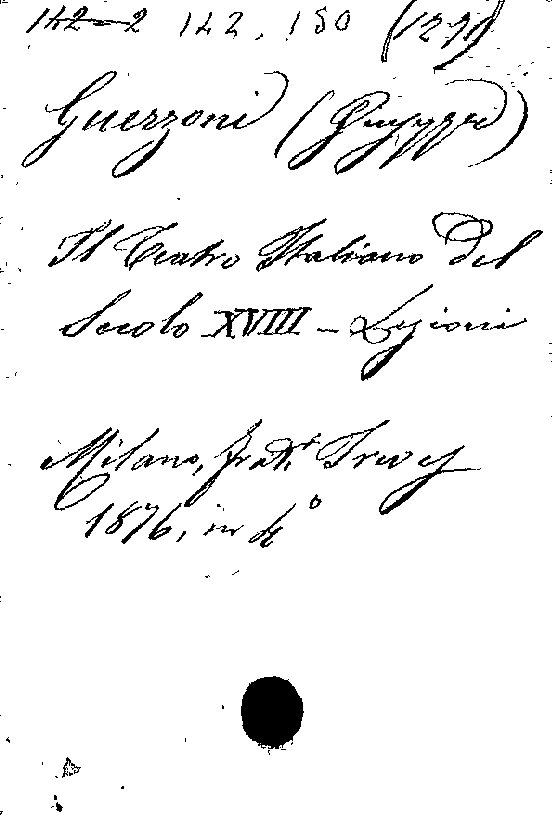 142-2 142. 150 (1271)
Guerzoni (Giuseppe)
Il Teatro Italiano del
Secolo XVIII - Lezioni
Milano, frat.i Treves
1876, in 4º